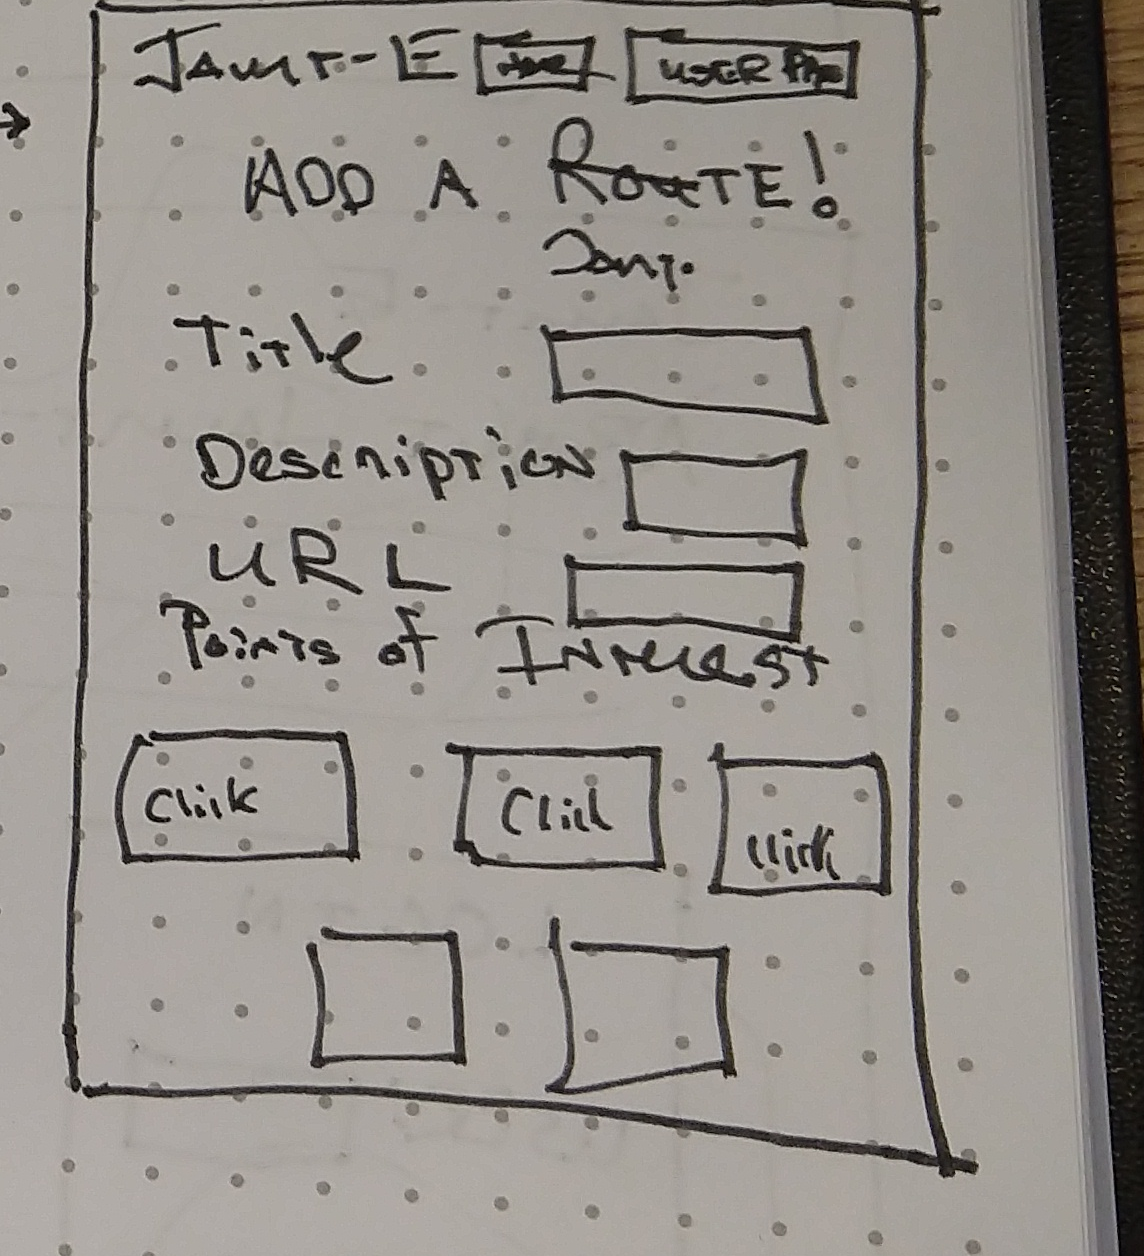 JAUNT-E USER
ADD A ROUTE!
Jaunt.
Title
Description
URL
Points of Interest
Click Click Click